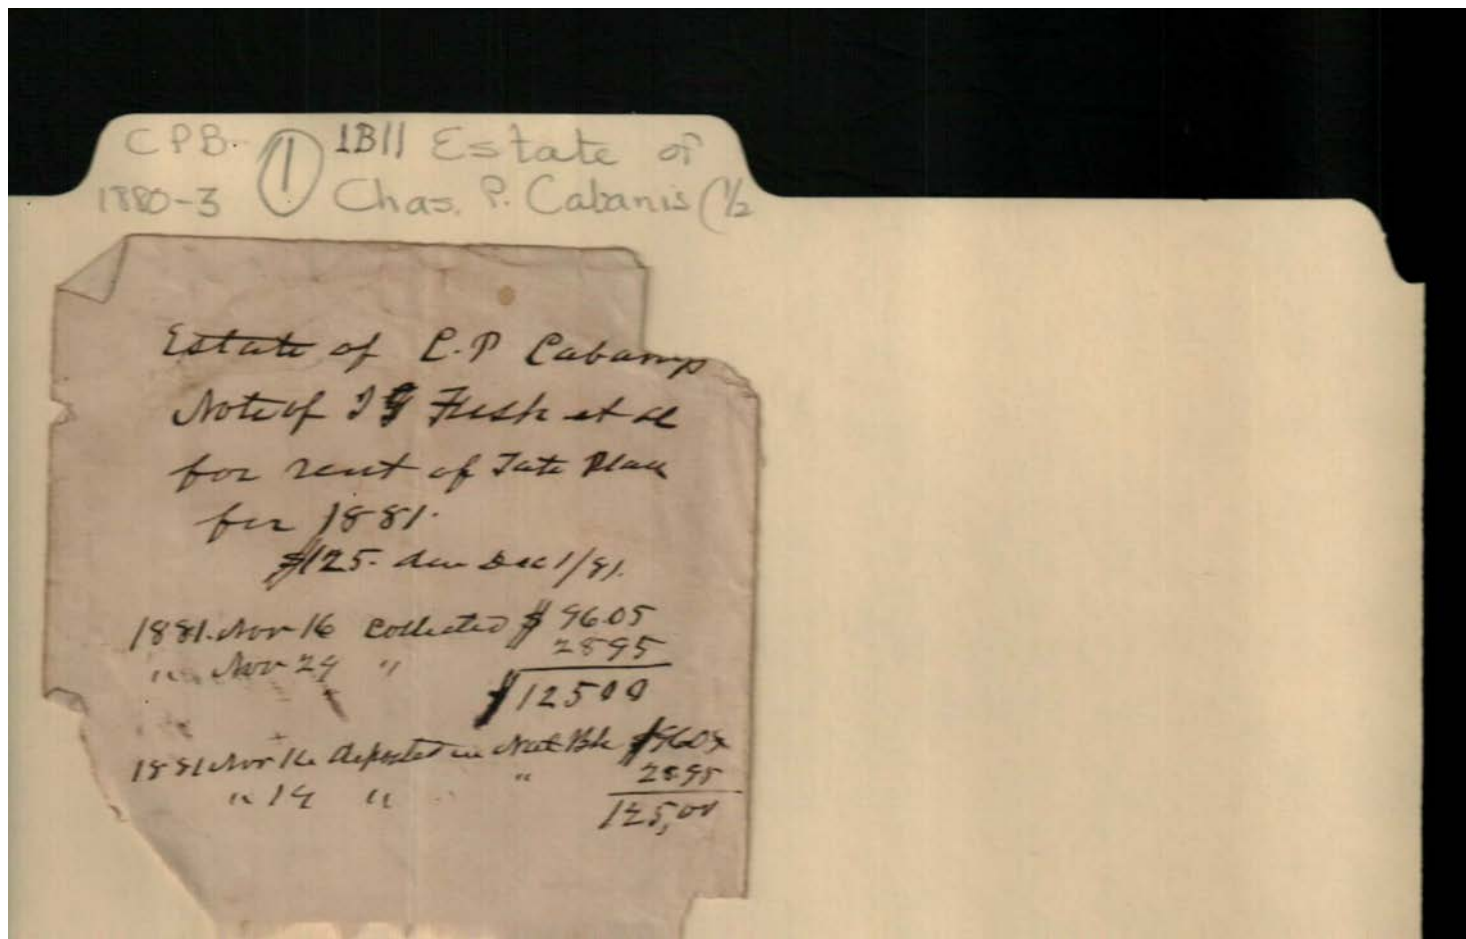 CPB. 1 1B11 Estate of
1880-3 Chas. P. Cabanis (1/2
Estate of C. P Cabaniss
Note of I G Fush et al
for rent of Tate Place
for 1881.
$125. due Dec 1/81.
1881. Nov 16 Collected $ 96.05
" Nov 29 " 28 95
$ 125 00
1881 Nov 16 deposited in Nat Bk $96.05
" 29 " " 28 95
125,00